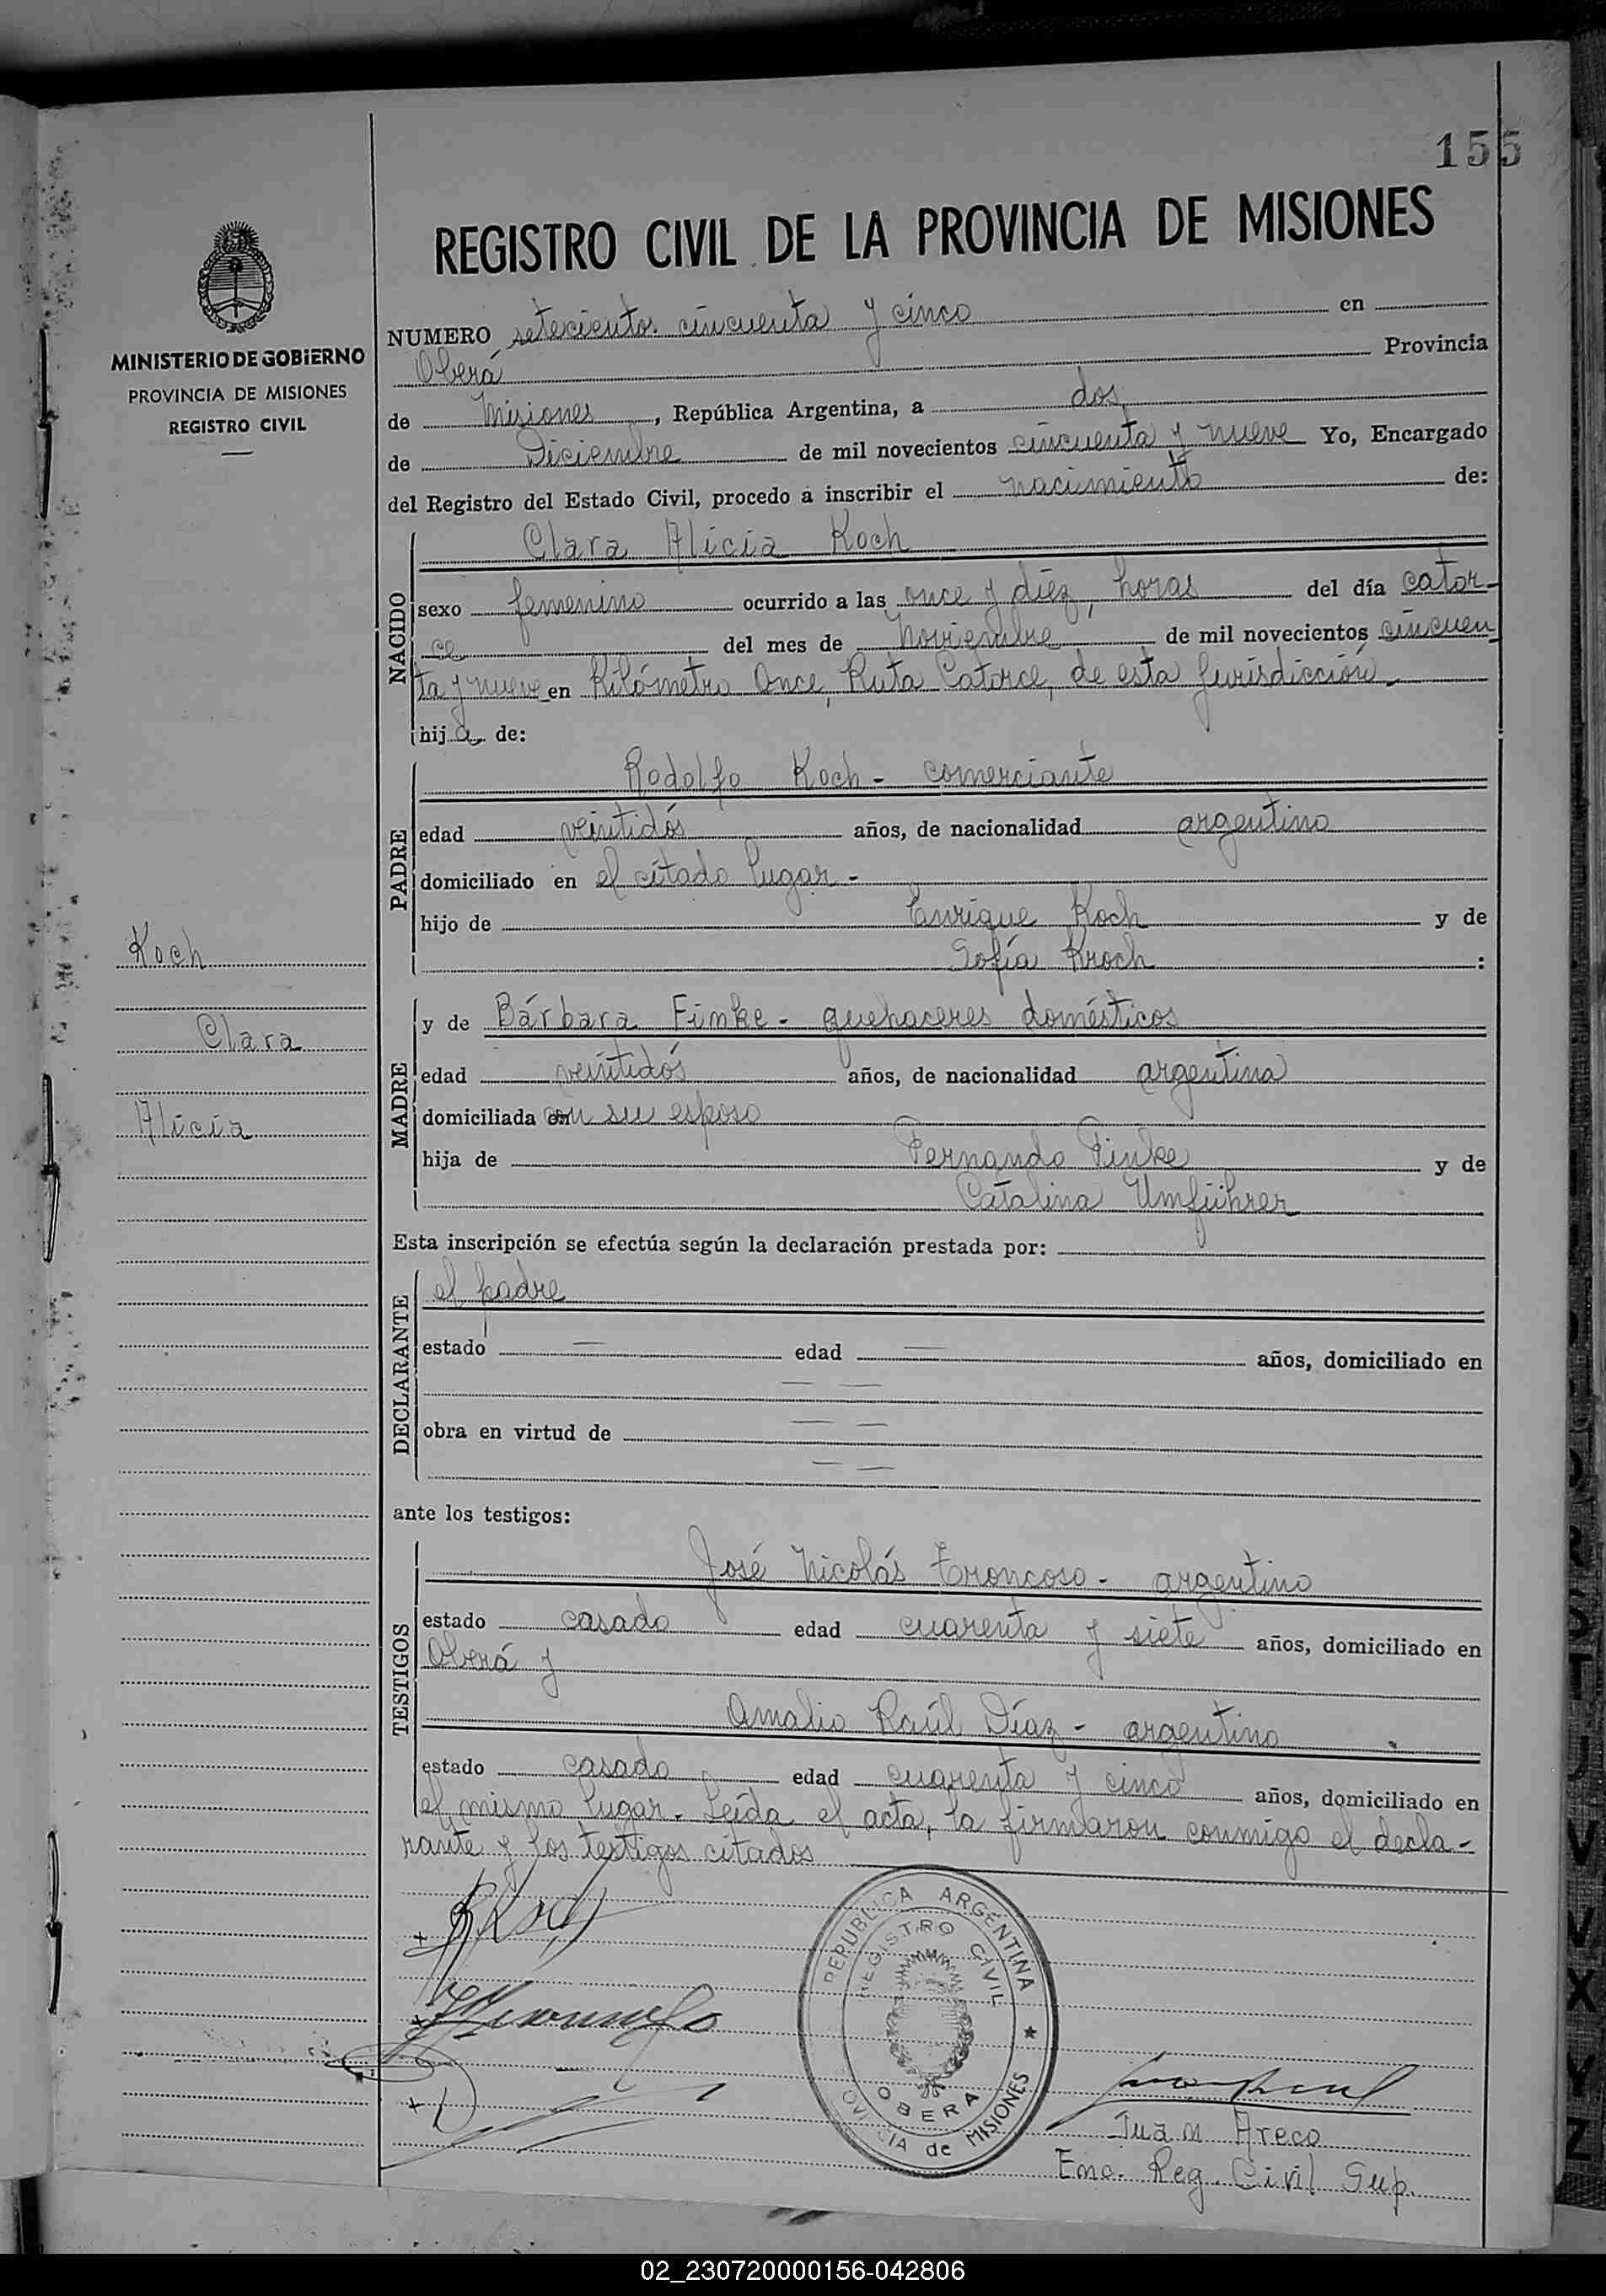 155
REGISTRO CIVIL DE LA PROVINCIA DE MISIONES
MINISTERIO DE GOBIERNO
PROVINCIA DE MISIONES
REGISTRO CIVIL
NUMERO setecientos cincuenta y cinco en
Oberá Provincia
de Misiones, República Argentina, a dos
de Diciembre de mil novecientos cincuenta y nueve Yo, Encargado
del Registro del Estado Civil, procedo a inscribir el nacimiento de:
NACIDO
Clara Alicia Koch
sexo femenino ocurrido a las once y diez, horas del día cator-
ce del mes de Noviembre de mil novecientos cincuen
ta y nueve en Kilómetro Once, Ruta Catorce, de esta Jurisdicción.
hija de:
PADRE
Rodolfo Koch - comerciante
edad veintidós años, de nacionalidad argentino
domiciliado en el citado lugar -
hijo de Enrique Koch y de
Sofía Kroch :
Koch
Clara
Alicia
MADRE
y de Bárbara Finke - quehaceres domésticos
edad veintidós años, de nacionalidad argentina
domiciliada con su esposo
hija de Fernando Finke y de
Catalina Umführer
Esta inscripción se efectúa según la declaración prestada por:
DECLARANTE
el padre
estado — edad — años, domiciliado en
— —
obra en virtud de — —
— —
ante los testigos:
TESTIGOS
José Nicolás Troncoso - argentino
estado casado edad cuarenta y siete años, domiciliado en
Oberá y
Amalio Raúl Díaz - argentino
estado casado edad cuarenta y cinco años, domiciliado en
el mismo lugar. Leída el acta, la firmaron conmigo el decla-
rante y los testigos citados
R Koch
REPUBLICA ARGENTINA
REGISTRO CIVIL
OBERA
PROVINCIA de MISIONES
Juan Areco
Enc. Reg. Civil Sup.
02_230720000156-042806